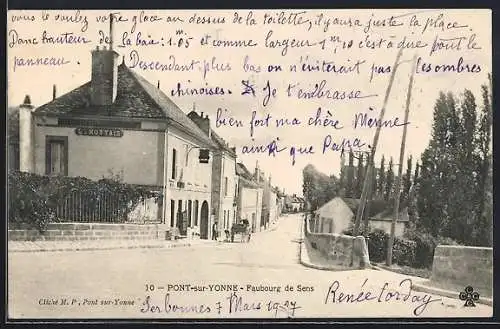 vous le voulez votre glace au dessus de la toilette, il y aura juste la place.
Donc hauteur de la baie: 1m05 et comme largeur 1m10 c'est à dire tout le
panneau. Descendant plus bas on n'éviterait pas les ombres
chinoises. Je t'embrasse
bien fort ma chère Mémé
ainsi que Papa.
G. MOTTAIS
10 - PONT-sur-YONNE - Faubourg de Sens
Cliché M. P., Pont sur-Yonne
Serbonnes 7 Mars 1927
Renée L